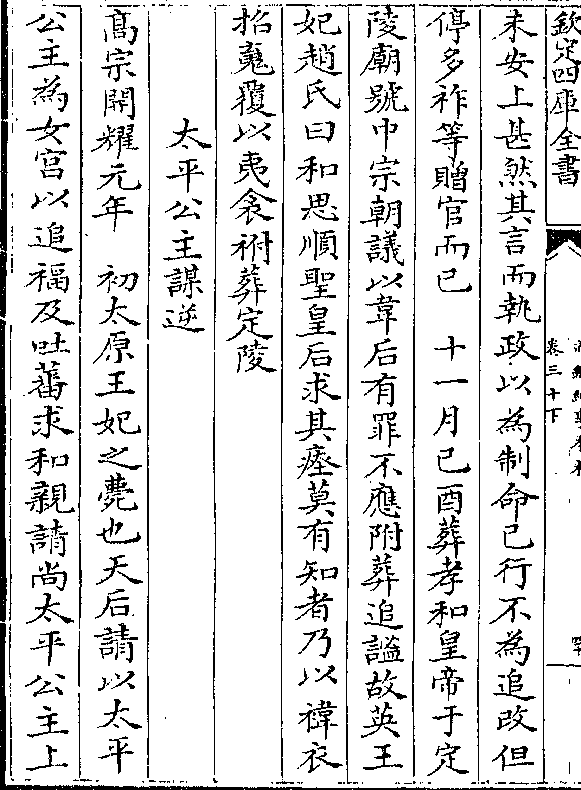 欽定四庫全書
卷三十下
未安上甚然其言而執政以為制命已行不為追改但
停多祚等贈官而已　十一月己酉葬孝和皇帝于定
陵廟號中宗朝議以韋后有罪不應附葬追謚故英王
妃趙氏曰和思順聖皇后求其瘞莫有知者乃以褘衣
招䰟覆以夷衾祔葬定陵
太平公主謀逆
髙宗開耀元年　初太原王妃之薨也天后請以太平
公主為女官以追福及吐蕃求和親請尚太平公主上